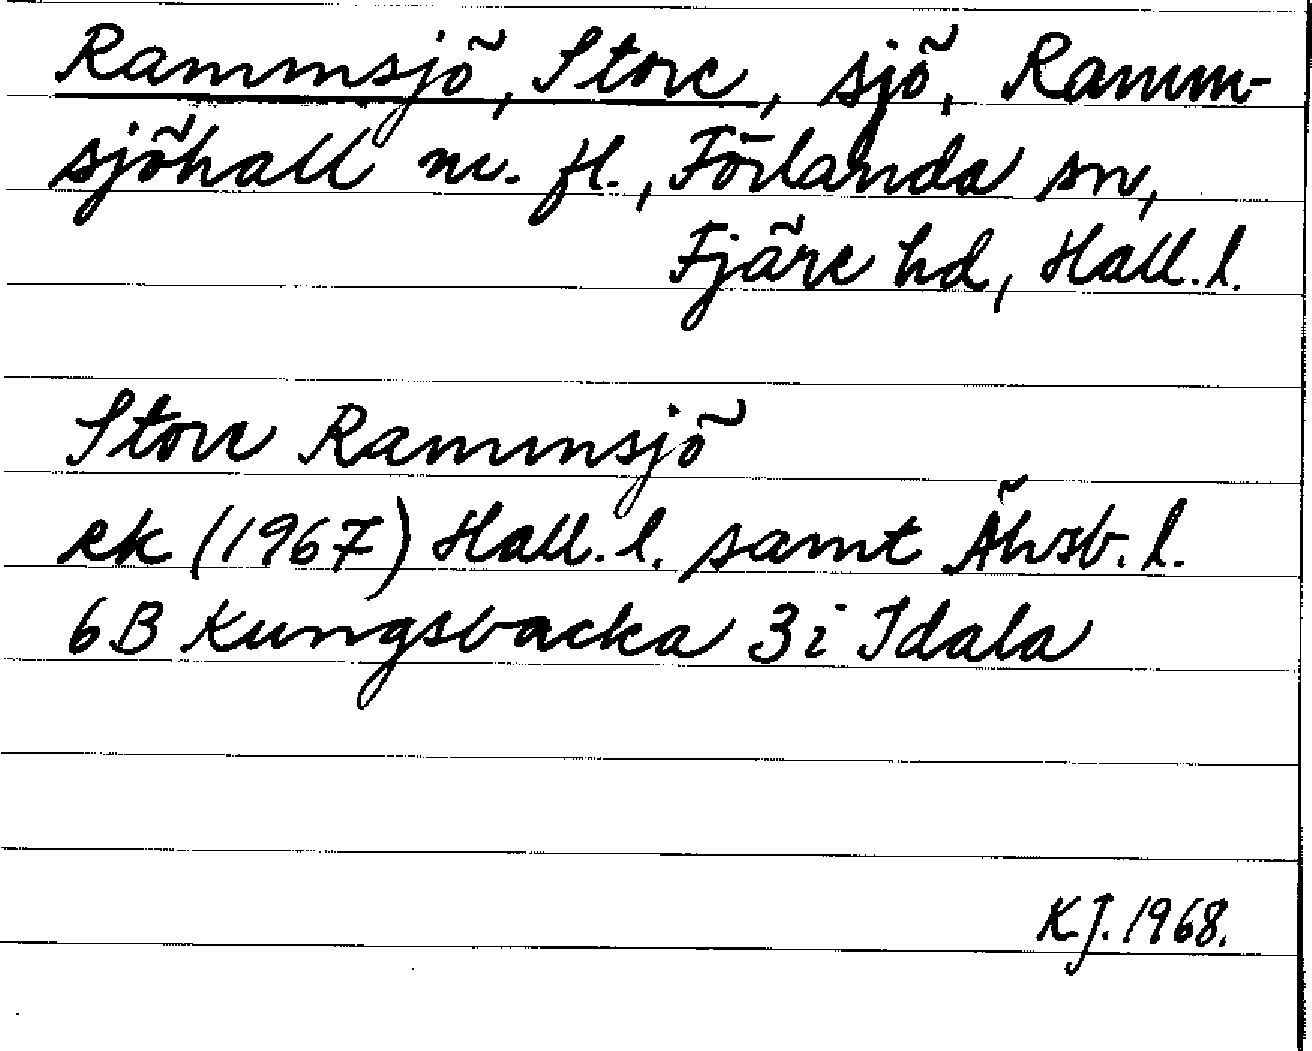 Rammsjö, Store, sjö, Ramm-
sjöhall m. fl., Förlanda sn,
Fjäre hd, Hall. l.
Store Rammsjö
ek (1967) Hall. l. samt Älvsb. l.
6B Kungsbacka 3i Idala
KJ. 1968.